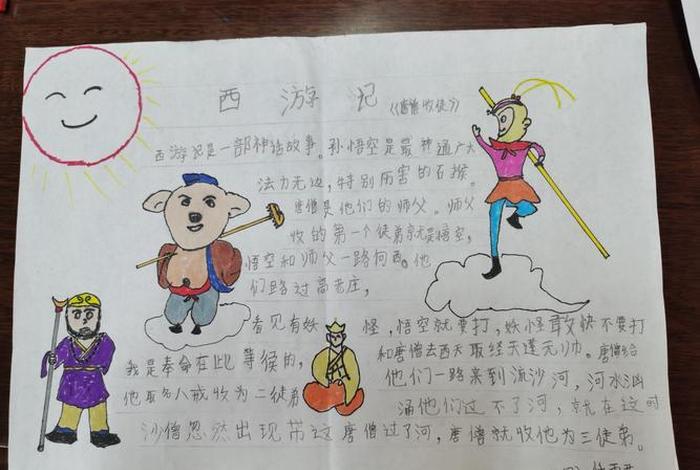 西游记《唐僧收徒》
西游记是一部神话故事。孙悟空是最神通广大
法力无边,特别厉害的石猴。
唐僧是他们的师父。师父
收的第一个徒弟就是悟空,
悟空和师父一路向西。他
们路过高老庄,
看见有妖怪,悟空就要打,妖怪敢快不要打
我是奉命在此等候的,和唐僧去西天取经天蓬元帅。唐僧给
他取名八戒收为二徒弟 他们一路来到流沙河,河水汹
涌他们过不了河,就在这时
沙僧忽然出现带这唐僧过了河,唐僧就收他为三徒弟。